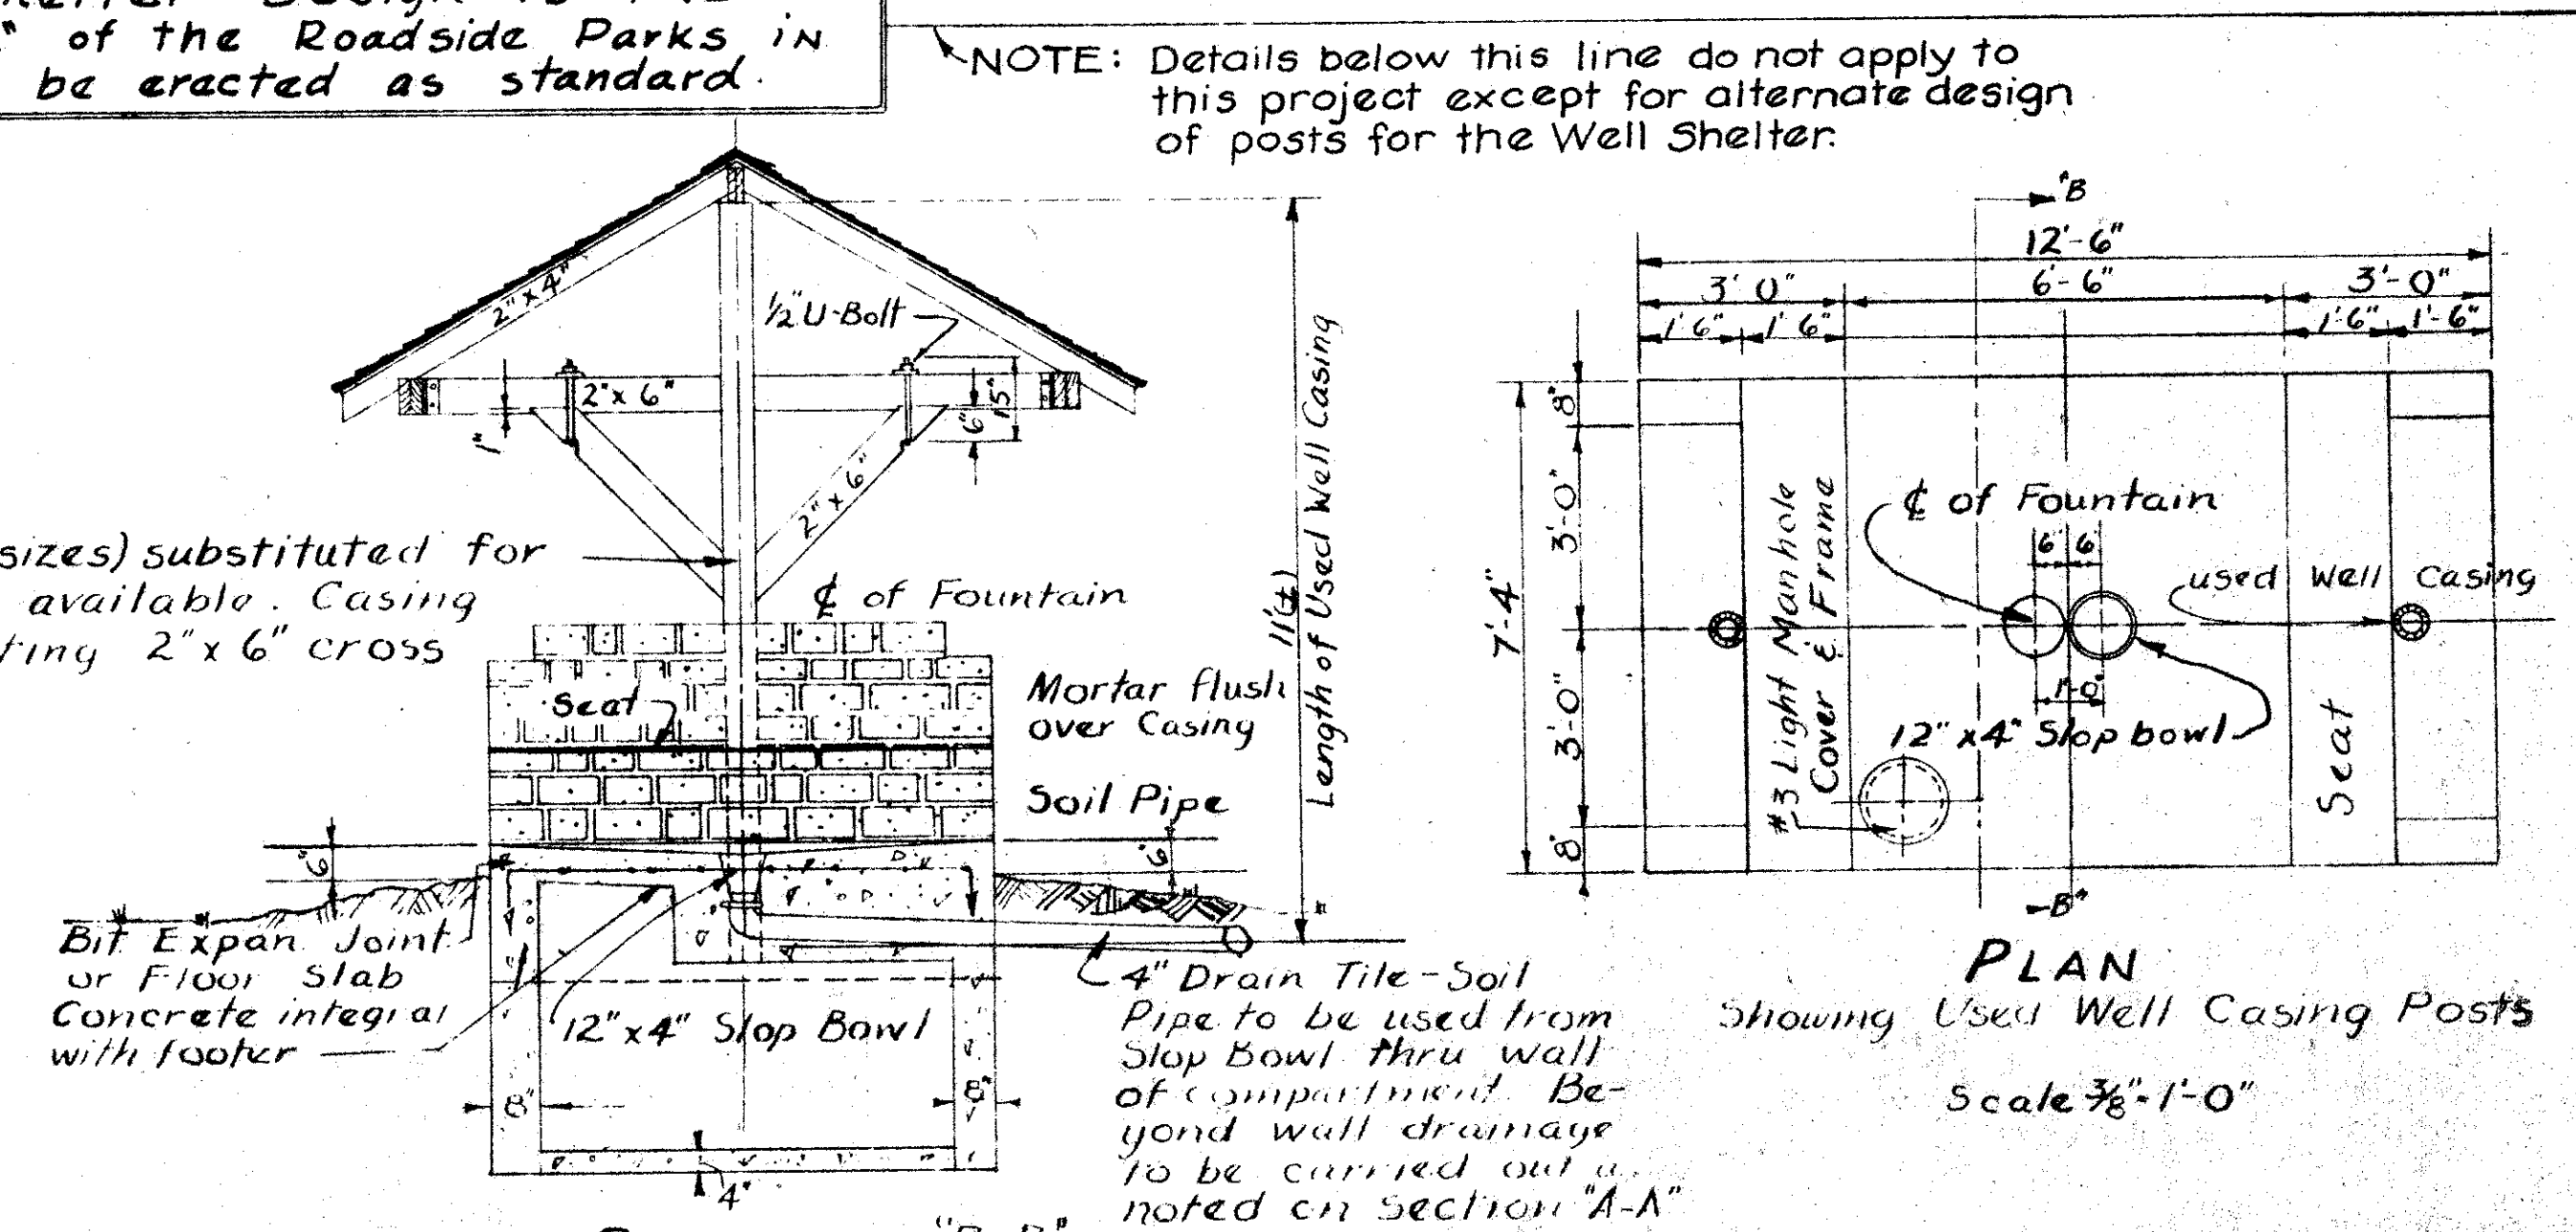 of the Roadside Parks in
be erected as standard.
NOTE: Details below this line do not apply to
this project except for alternate design
of posts for the Well Shelter.
2" x 4"
1/2" U-Bolt
2" x 6"
1"
6"
15"
2" x 6"
sizes) substituted for
available. Casing
2" x 6" cross
℄ of Fountain
Seat
Mortar flush
over Casing
Soil Pipe
11'(±)
Length of Used Well Casing
6"
6"
Bit Expan. Joint
or Floor Slab
Concrete integral
with footer
12"x4" Slop Bowl
8"
8"
4"
4" Drain Tile - Soil
Pipe to be used from
Slop Bowl thru wall
of compartment. Be-
yond wall drainage
to be carried out
noted on Section "A-A"
"B
12'-6"
3' 0"
6'-6"
3'-0"
1'6"
1'6"
1'6"
1'-6"
8"
3'-0"
7'-4"
3'-0"
8"
#3 Light Manhole
Cover & Frame
℄ of Fountain
6"
6"
1'-0"
used Well Casing
12" x 4" Slop bowl
Seat
B"
PLAN
Showing Used Well Casing Posts
Scale 3/8"=1'-0"